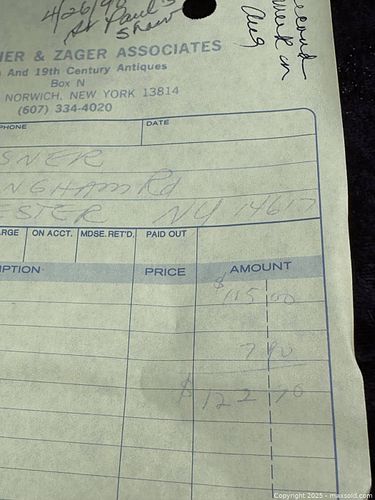 4/26/9
St Paul's
Show
second
week in
Aug
ER & ZAGER ASSOCIATES
And 19th Century Antiques
Box N
NORWICH, NEW YORK 13814
(607) 334-4020
PHONE
DATE
SNER
NGHAM Rd
ESTER NY 14617
RGE
ON ACCT.
MDSE. RET'D.
PAID OUT
IPTION
PRICE
AMOUNT
$115.00
7 90
$122 70
Copyright 2025 - maxsold.com